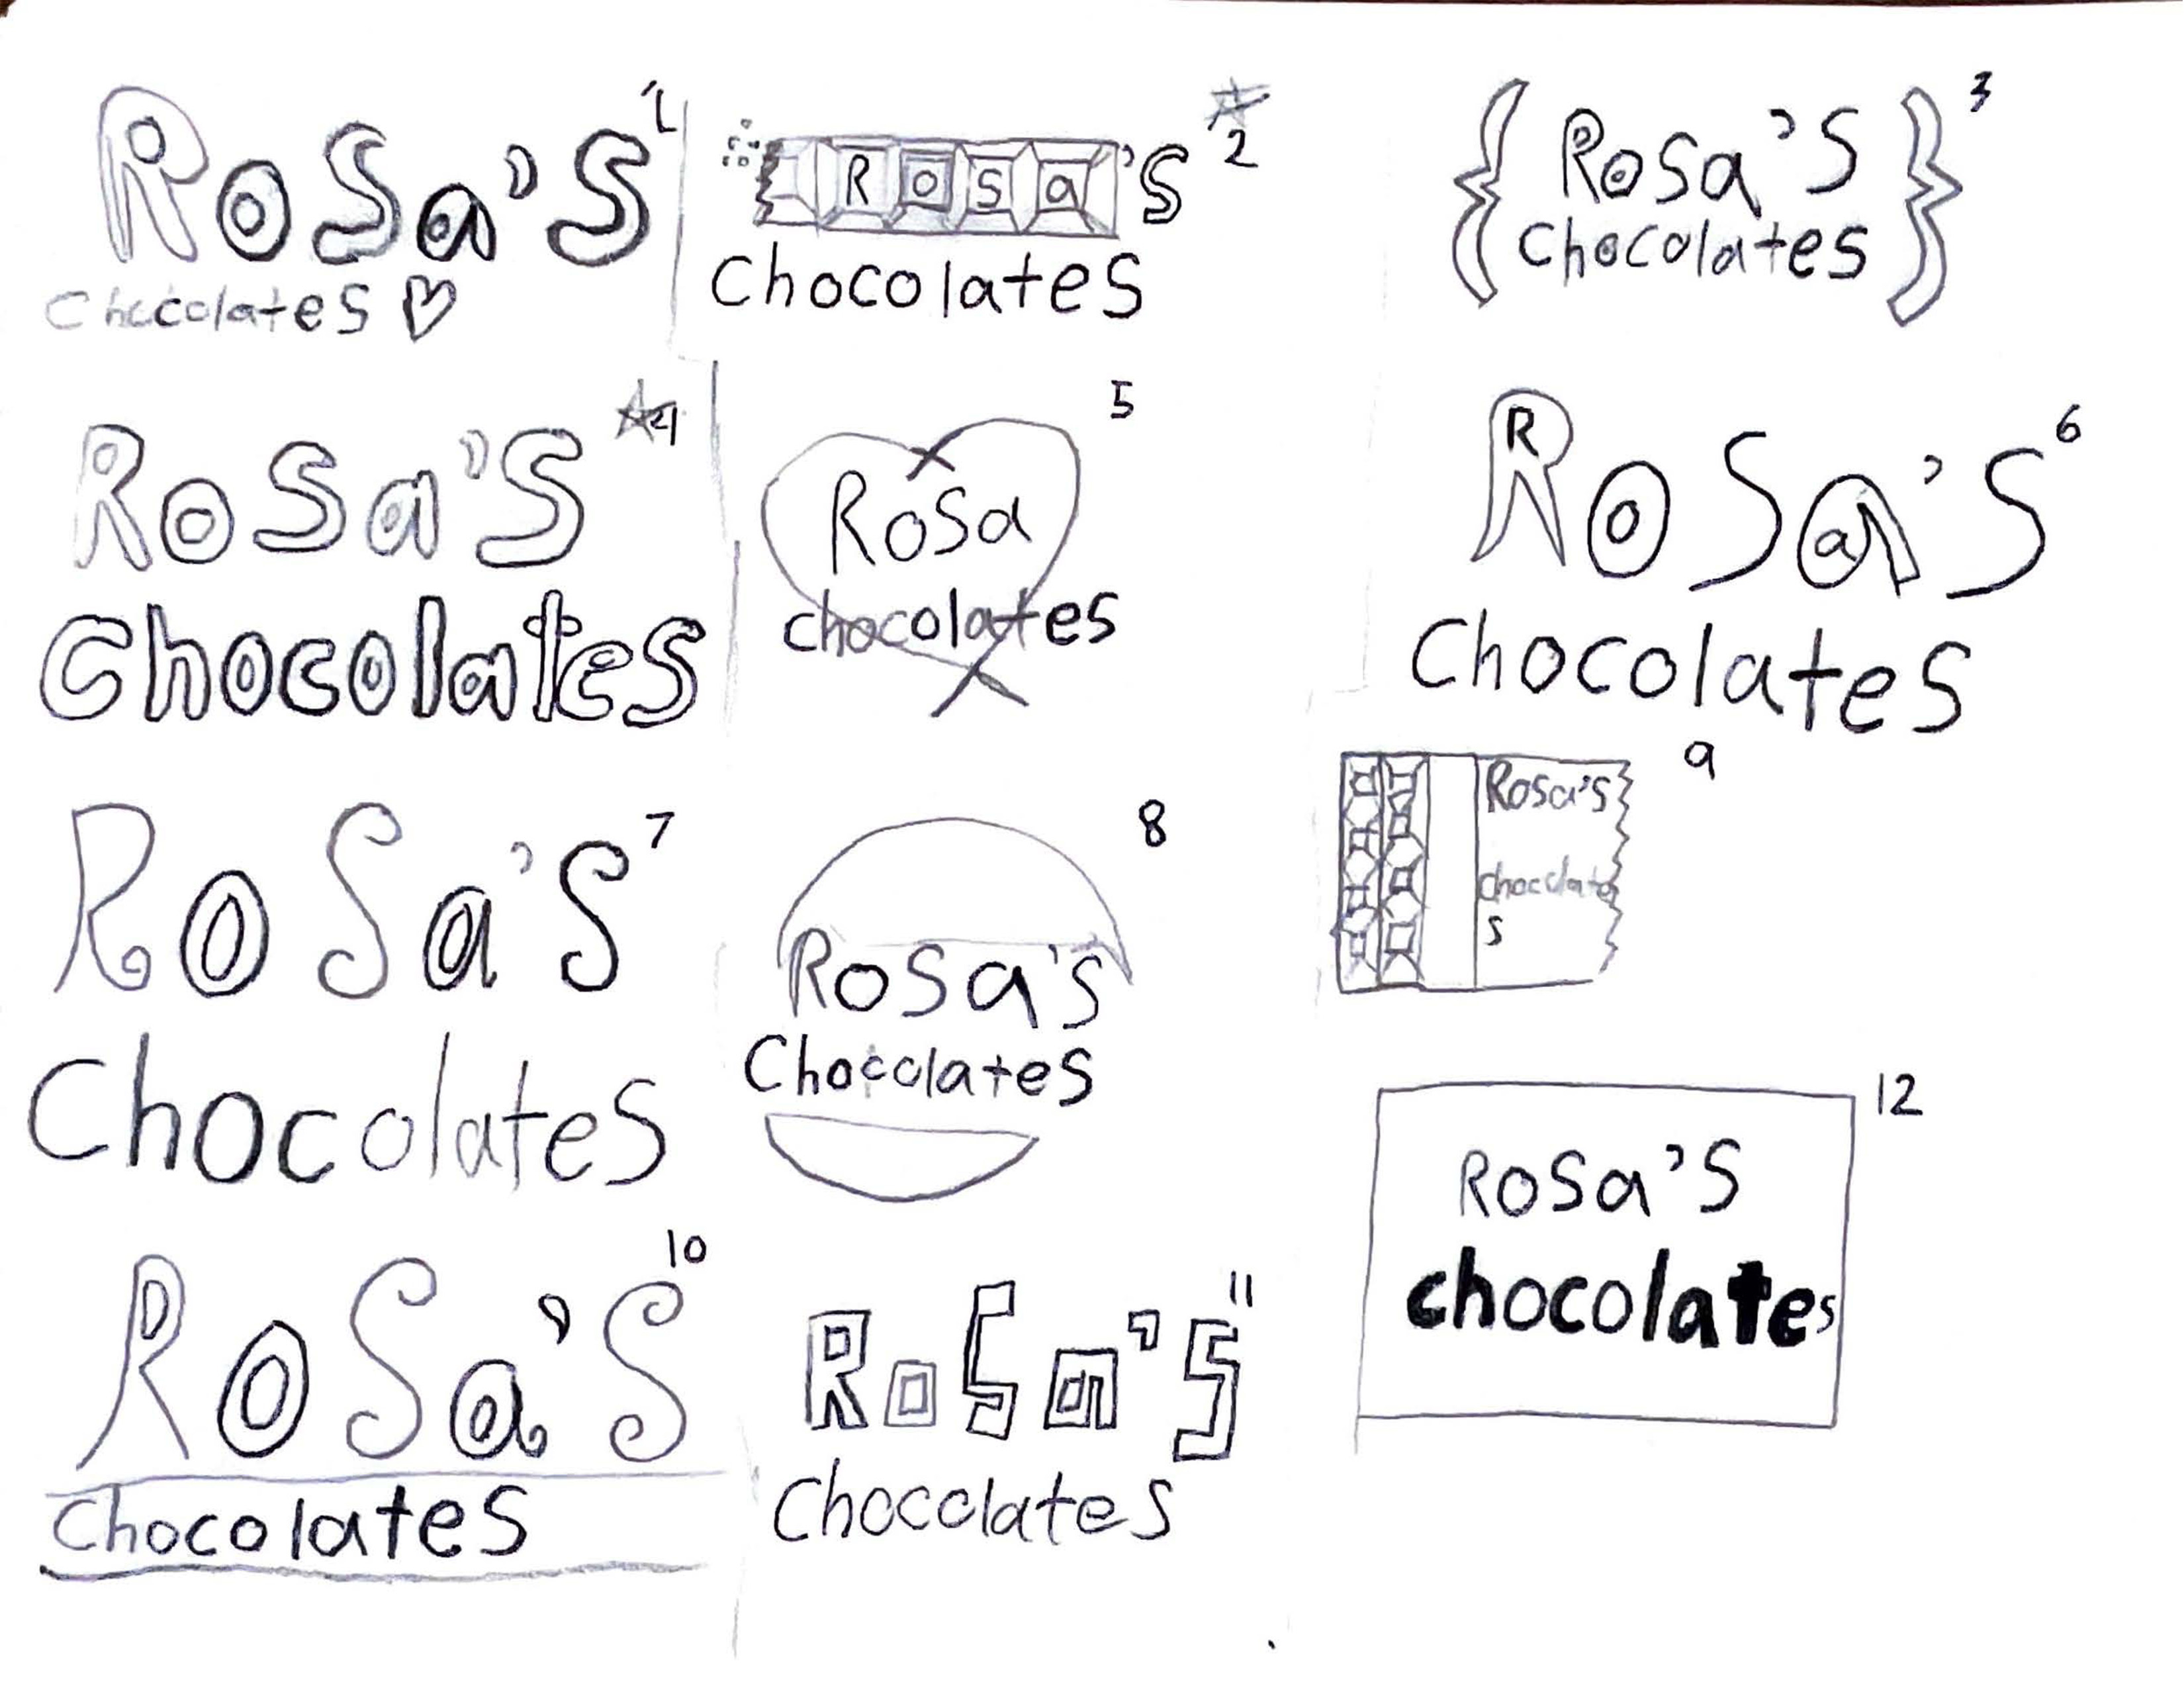 1
RoSa'S
Chocolates
2
Rosa's
Chocolates
3
Rosa's
Chocolates
4
RoSa'S
Chocolates
5
Rosa
chocolates
6
R
RoSa'S
Chocolates
7
RoSa'S
Chocolates
8
Rosa's
Chocolates
9
Rosa's
chocolate
s
10
RoSa'S
Chocolates
11
RoSa'S
Chocolates
12
Rosa's
chocolates